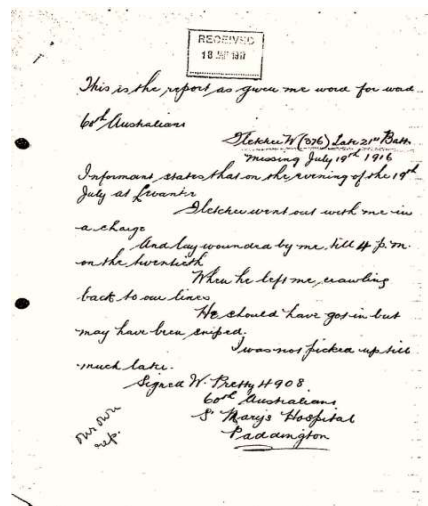 RECEIVED
18 1917
This is the report as given me word for word
60th Australians
Fletcher W (076) Late 21st Batt.
missing July 19th 1916
Informant states that on the evening of the 19th
July at
Fletcher went out with me in
a charge
And lay wounded by me, till 4 p.m.
on the twentieth
When he left me, crawling
back to our lines
He should have got in but
may have been sniped.
I was not picked up till
much later.
Signed W. Pretty 4908.
60th Australians
St Mary's Hospital
Paddington
our own
rep.